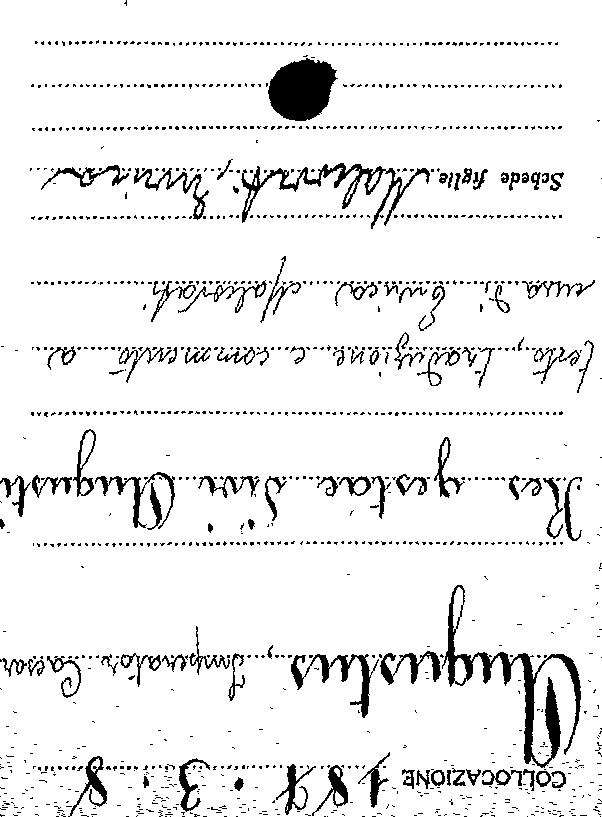 COLLOCAZIONE 187 . 3 . 8
Augustus, Imperator Caesar
Res gestae Divi Augusti
testo, traduzione e commento a
cura di Enrica Malcovati
Schede figlie Malcovati, Enrica